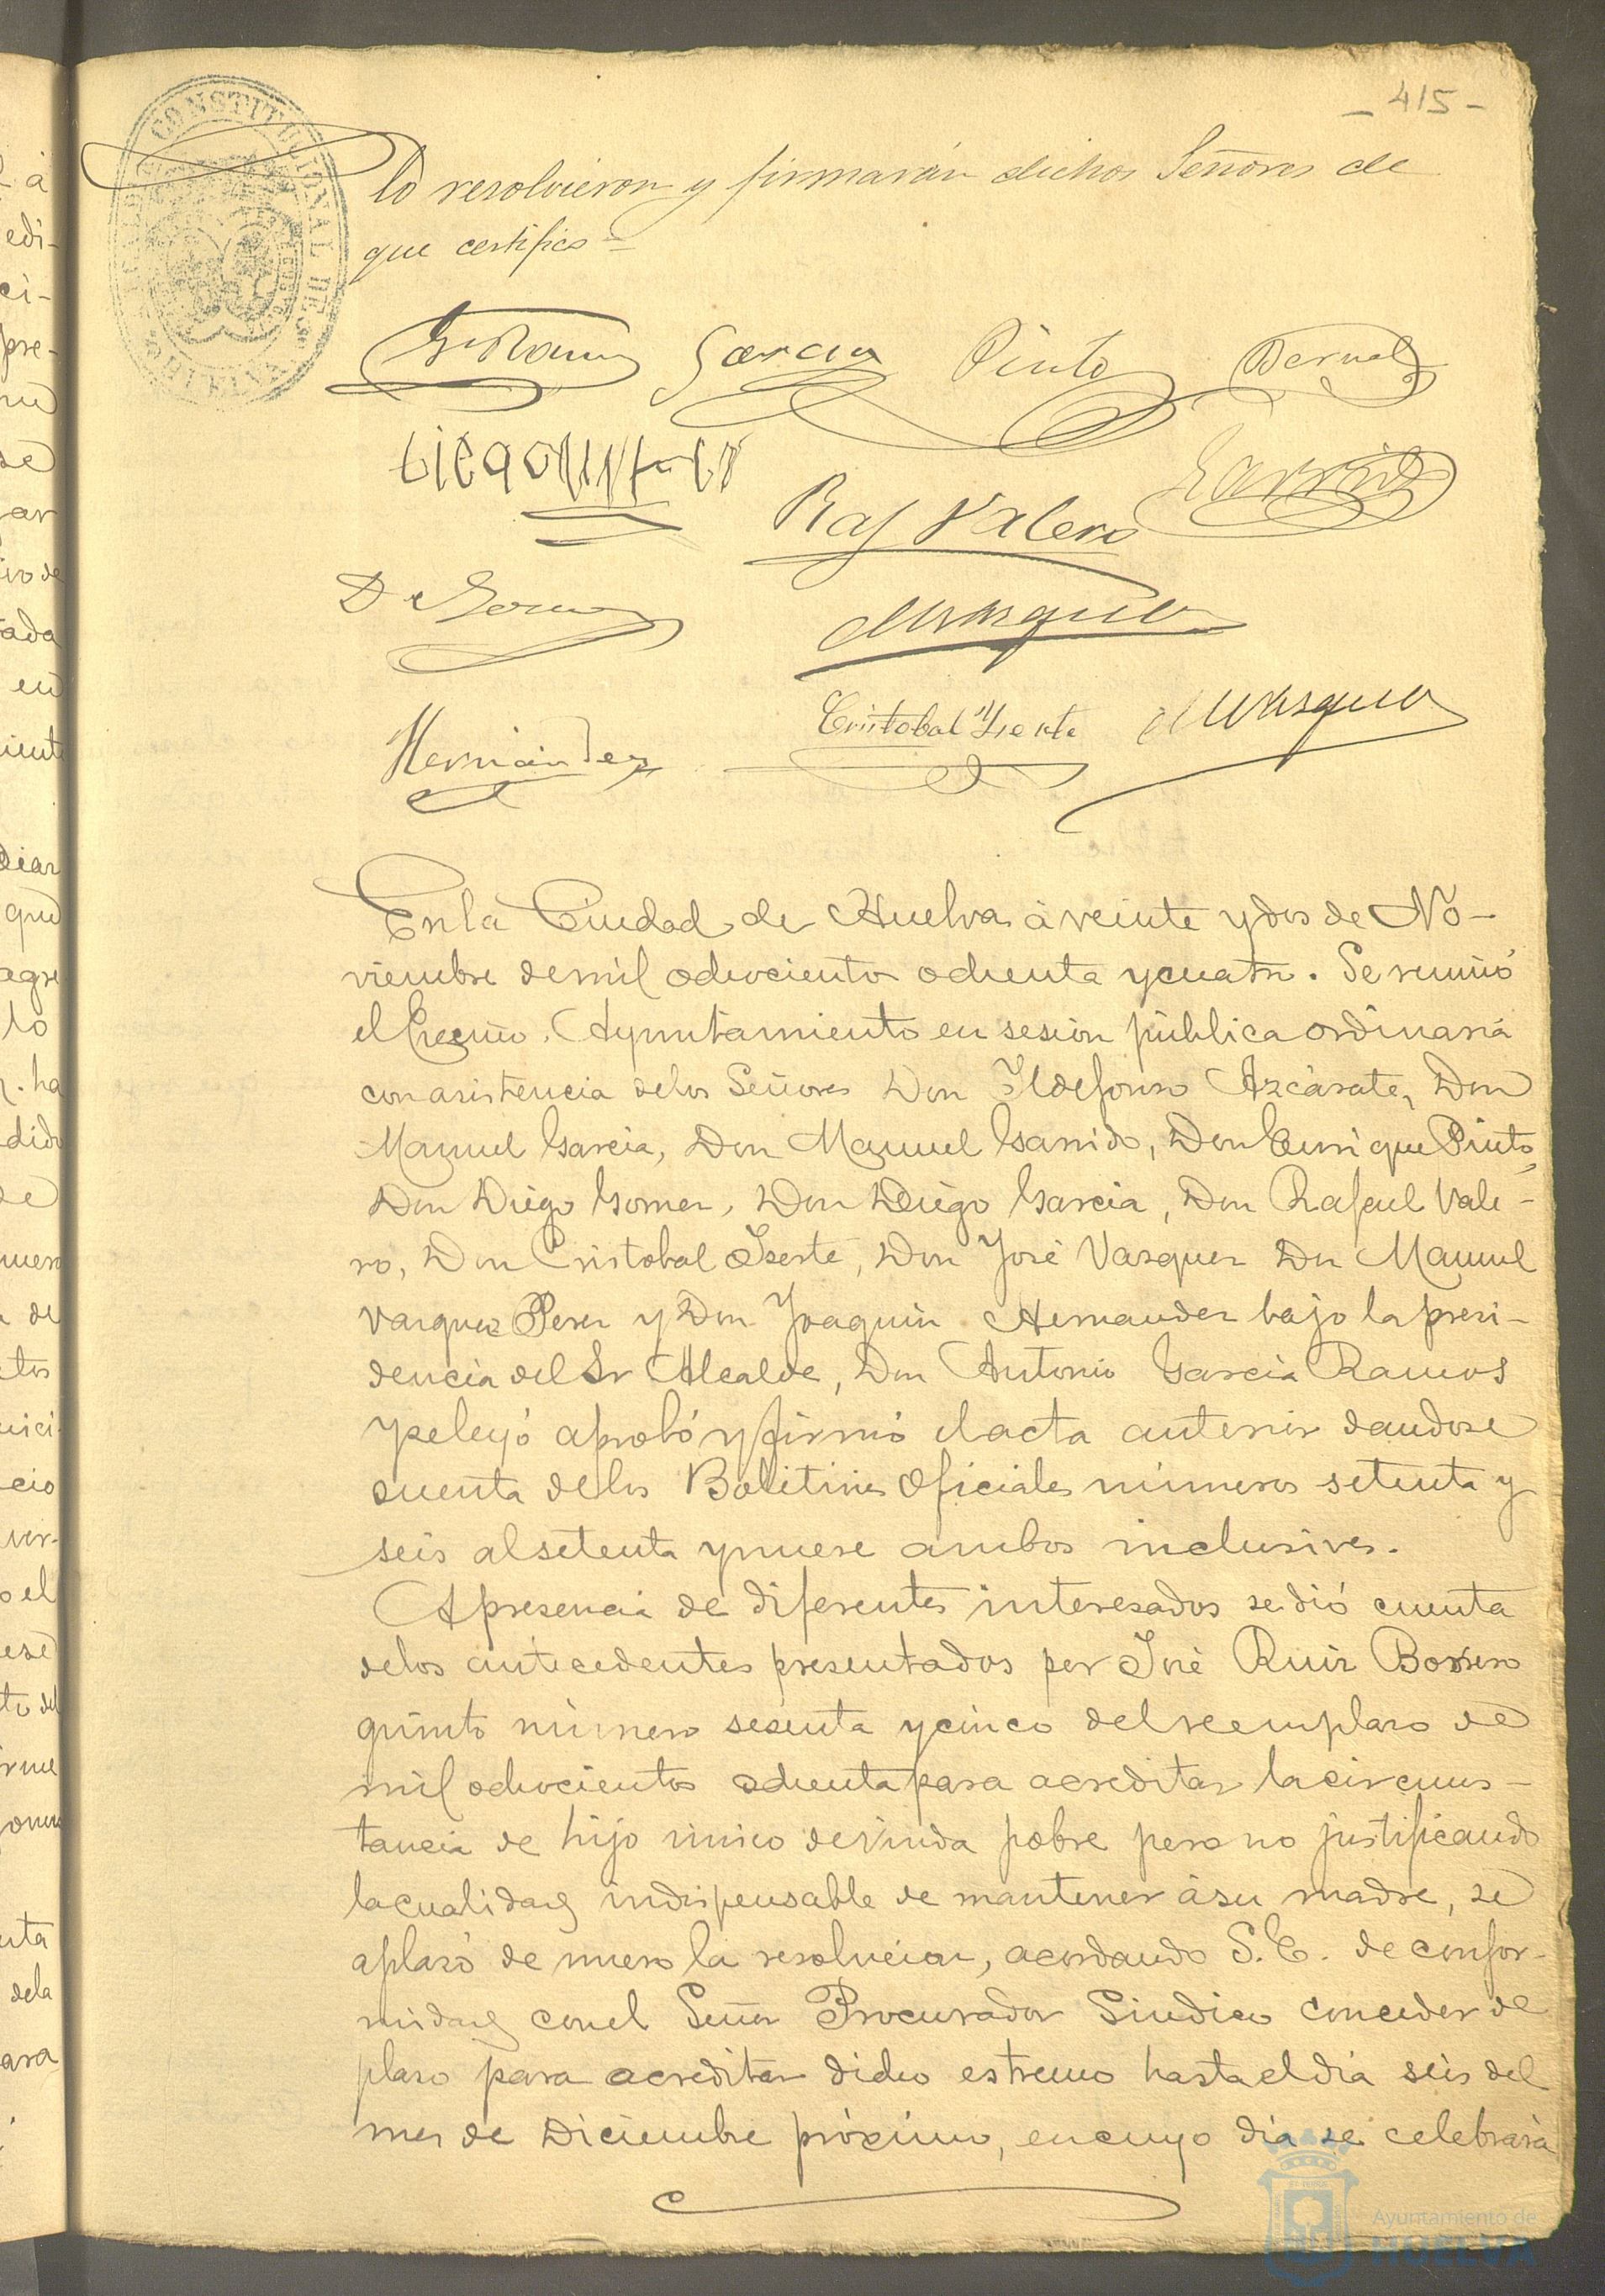 - 415 -
lo resolvieron y firmarán dichos Señores de
que certifico =
Garcia Pinto Bernal
Raf Valero Garrido
D. Gomez
Vasquez
Cristobal Yserte Vasquez
Hernández
En la Ciudad de Huelva à veinte y dos de No-
viembre de mil ochocientos ochenta y cuatro. Se reunió
el Excmo. Ayuntamiento en sesion pública ordinaria
con asistencia de los Señores Don Ildefonso Azcárate, Don
Manuel Garcia, Don Manuel Garrido, Don Enrique Pinto,
Don Diego Gomez, Don Diego Garcia, Don Rafael Vale-
ro, Don Cristobal Yserte, Don José Vasquez Don Manuel
Vasquez Perez y Don Joaquin Hernandez bajo la presi-
dencia del Sr Alcalde, Don Antonio Garcia Ramos
y se leyó aprobó y firmó el acta anterior dandose
cuenta de los Boletines oficiales números setenta y
seis al setenta y nueve ambos inclusives.
A presencia de diferentes interesados se dió cuenta
de los antecedentes presentados por José Ruiz Borrero
quinto número sesenta y cinco del reemplazo de
mil ochocientos ochenta para acreditar la circuns-
tancia de hijo único de viuda pobre pero no justificando
la cualidad indispensable de mantener à su madre, se
aplazó de nuevo la resolucion, acordando S. E. de confor-
midad con el Señor Procurador Sindico conceder de
plazo para acreditar dicho estremo hasta el dia seis del
mes de Diciembre próximo, en cuyo dia se celebrará
CONSTITUCIONAL DE HUELVA
Ayuntamiento de
HUELVA